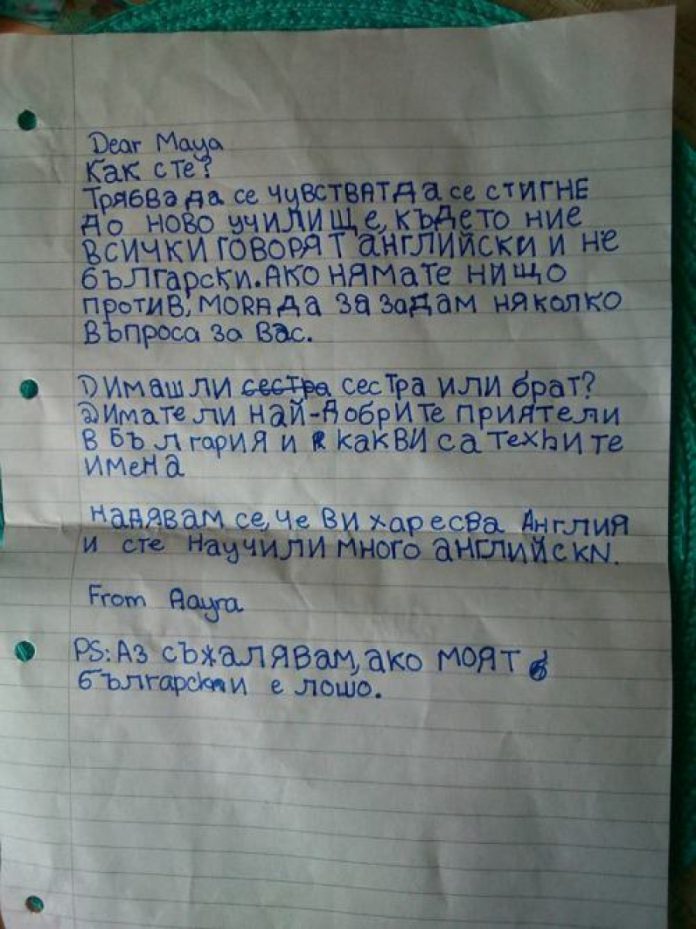 Dear Maya
Как сте?
Трябва да се чувстват да се стигне
до ново училище, където ние
всички говорят английски и не
български. Ако нямате нищо
против, мога да за задам няколко
въпроса за вас.
1) Имаш ли сестра сестра или брат?
2) Имате ли най-добрите приятели
в България и какви са техните
имена
Надявам се, че ви харесва Англия
и сте научили много английски.
From Aayra
PS: Аз съжалявам, ако моят
български е лошо.